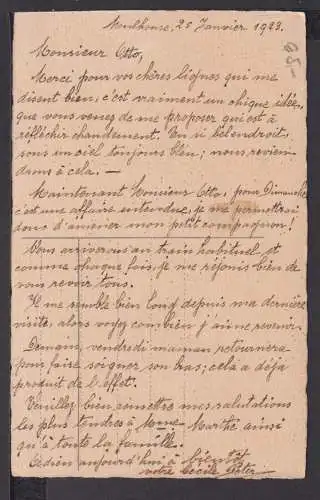 Mulhouse, 25 Janvier 1923.
Monsieur Otto,
Merci pour vos chères lignes qui me
disent bien, c'est vraiment un chique idée,
que vous venez de me proposer qui est à
réfléchir chaudement. En si bel endroit,
sous un ciel toujours bleu; nous revien-
drons à cela. —
Maintenant Monsieur Otto, pour Dimanche
c'est une affaire entendue, je me permettrai
donc d'amener mon petit compagnon!
Vous arriverons au train habituel et
comme chaque fois, je me réjouis bien de
vous revoir tous.
Il me semble bien long depuis ma dernière
visite, alors voyez combien j'aime revenir.
Demain, vendredi maman retournera
pour faire soigner son bras; cela a déjà
produit de l'effet.
Veuillez bien remettre mes salutations
les plus tendres à Mme Marthe ainsi
qu'à toute la famille.
aujourd'hui à bientôt
votre Cécile